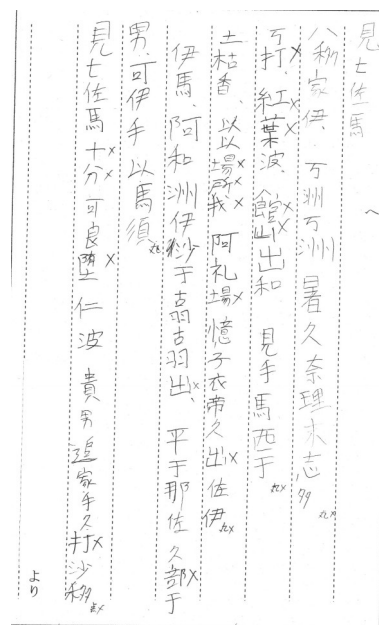 見七佐馬 へ
八移家伊、万洲万洲 暑久奈理末志夛
万打、紅葉波、館山出和 見手馬西于
土枯香、以以場所我、阿礼場 憶子衣帝久出佐伊
伊馬、阿和洲伊 于古羽古羽出、平于那佐久部于
男、可伊手以馬須
見七佐馬 十分 可良堕 仁波 貴男 追家手久打沙移
より